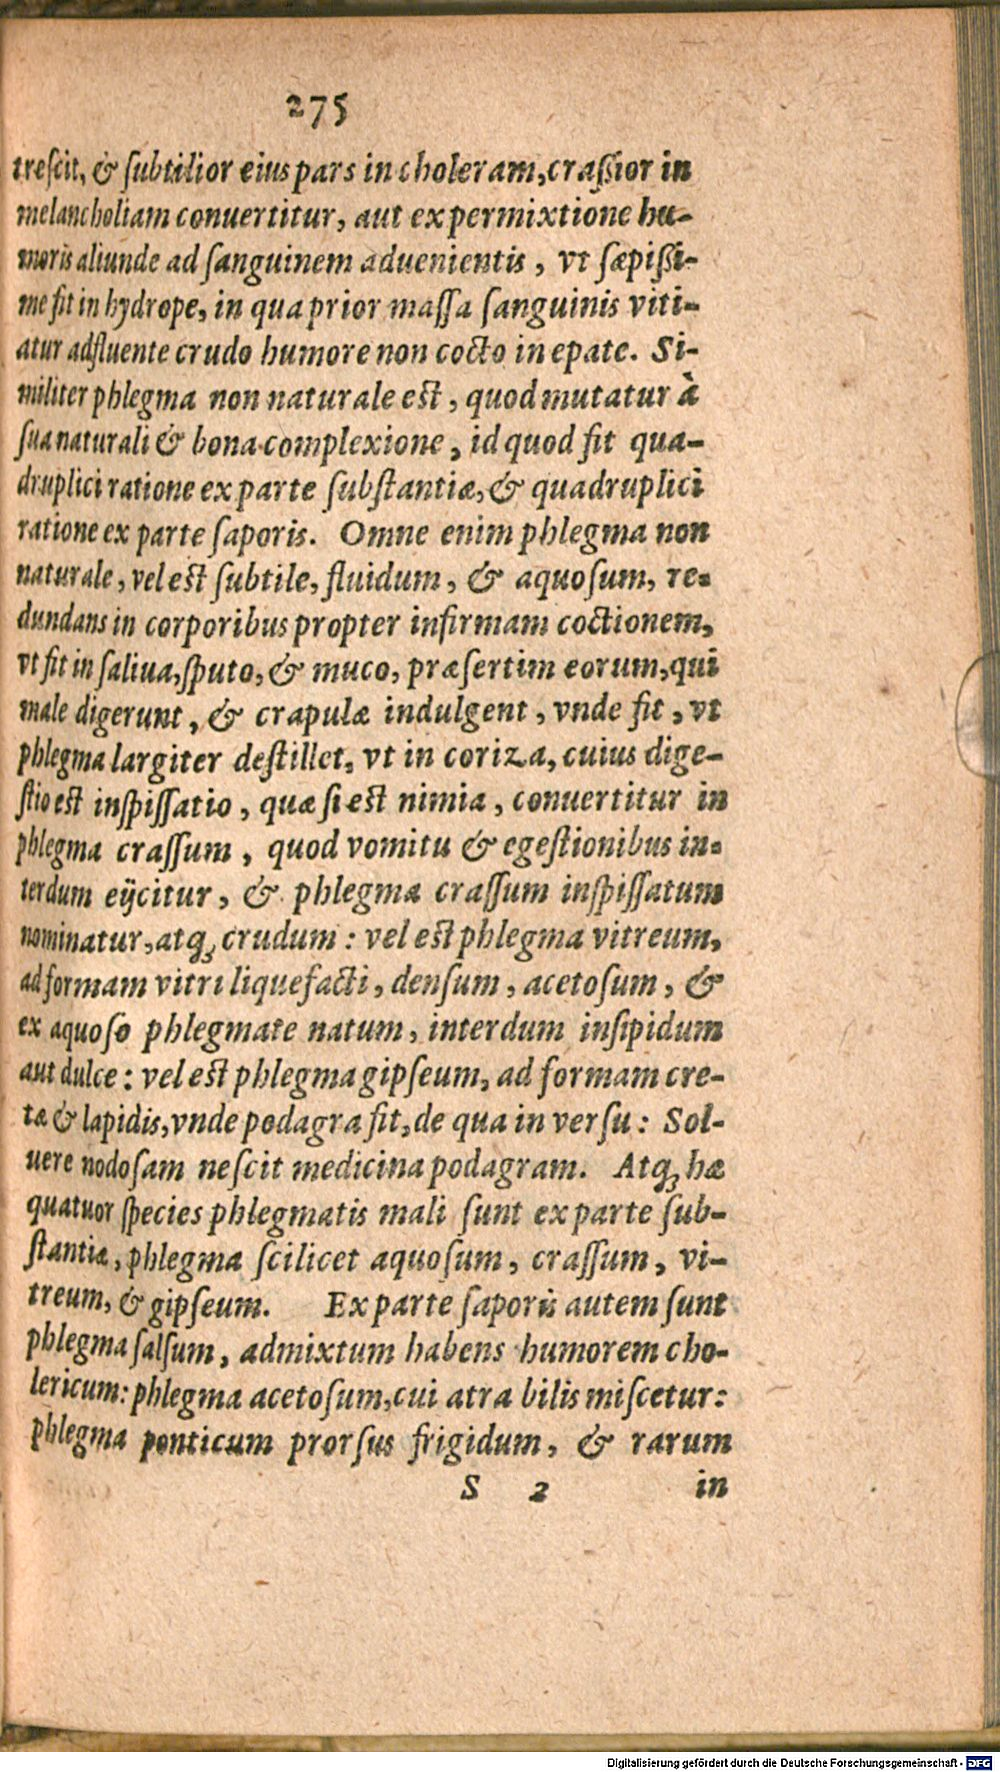 275
trescit, & ſubtilior eius pars in choleram, craſſior in
melancholiam conuertitur, aut ex permixtione hu-
moris aliunde ad ſanguinem aduenientis, vt ſæpiſſi-
me fit in hydrope, in qua prior maſſa ſanguinis viti-
atur adfluente crudo humore non cocto in epate. Si-
militer phlegma non naturale est, quod mutatur à
ſua naturali & bona complexione, id quod fit qua-
druplici ratione ex parte ſubſtantiæ, & quadruplici
ratione ex parte ſaporis. Omne enim phlegma non
naturale, vel est ſubtile, fluidum, & aquoſum, re-
dundans in corporibus propter infirmam coctionem,
vt fit in ſaliua, ſputo, & muco, præſertim eorum, qui
male digerunt, & crapulæ indulgent, vnde fit, vt
phlegma largiter deſtillet, vt in coriza, cuius dige-
ſtio est inſpiſſatio, quæ ſi est nimia, conuertitur in
phlegma craſſum, quod vomitu & egeſtionibus in-
terdum eijcitur, & phlegma craſſum inſpiſſatum
nominatur, atq; crudum: vel est phlegma vitreum,
ad formam vitri liquefacti, denſum, acetoſum, &
ex aquoſo phlegmate natum, interdum inſipidum
aut dulce: vel est phlegma gipſeum, ad formam cre-
tæ & lapidis, vnde podagra fit, de qua in verſu: Sol-
uere nodoſam neſcit medicina podagram. Atq; hæ
quatuor ſpecies phlegmatis mali ſunt ex parte ſub-
ſtantiæ, phlegma ſcilicet aquoſum, craſſum, vi-
treum, & gipſeum. Ex parte ſaporis autem ſunt
phlegma ſalſum, admixtum habens humorem cho-
lericum: phlegma acetoſum, cui atra bilis miſcetur:
phlegma ponticum prorſus frigidum, & rarum
S 2 in
Digitalisierung gefördert durch die Deutsche Forschungsgemeinschaft - DFG